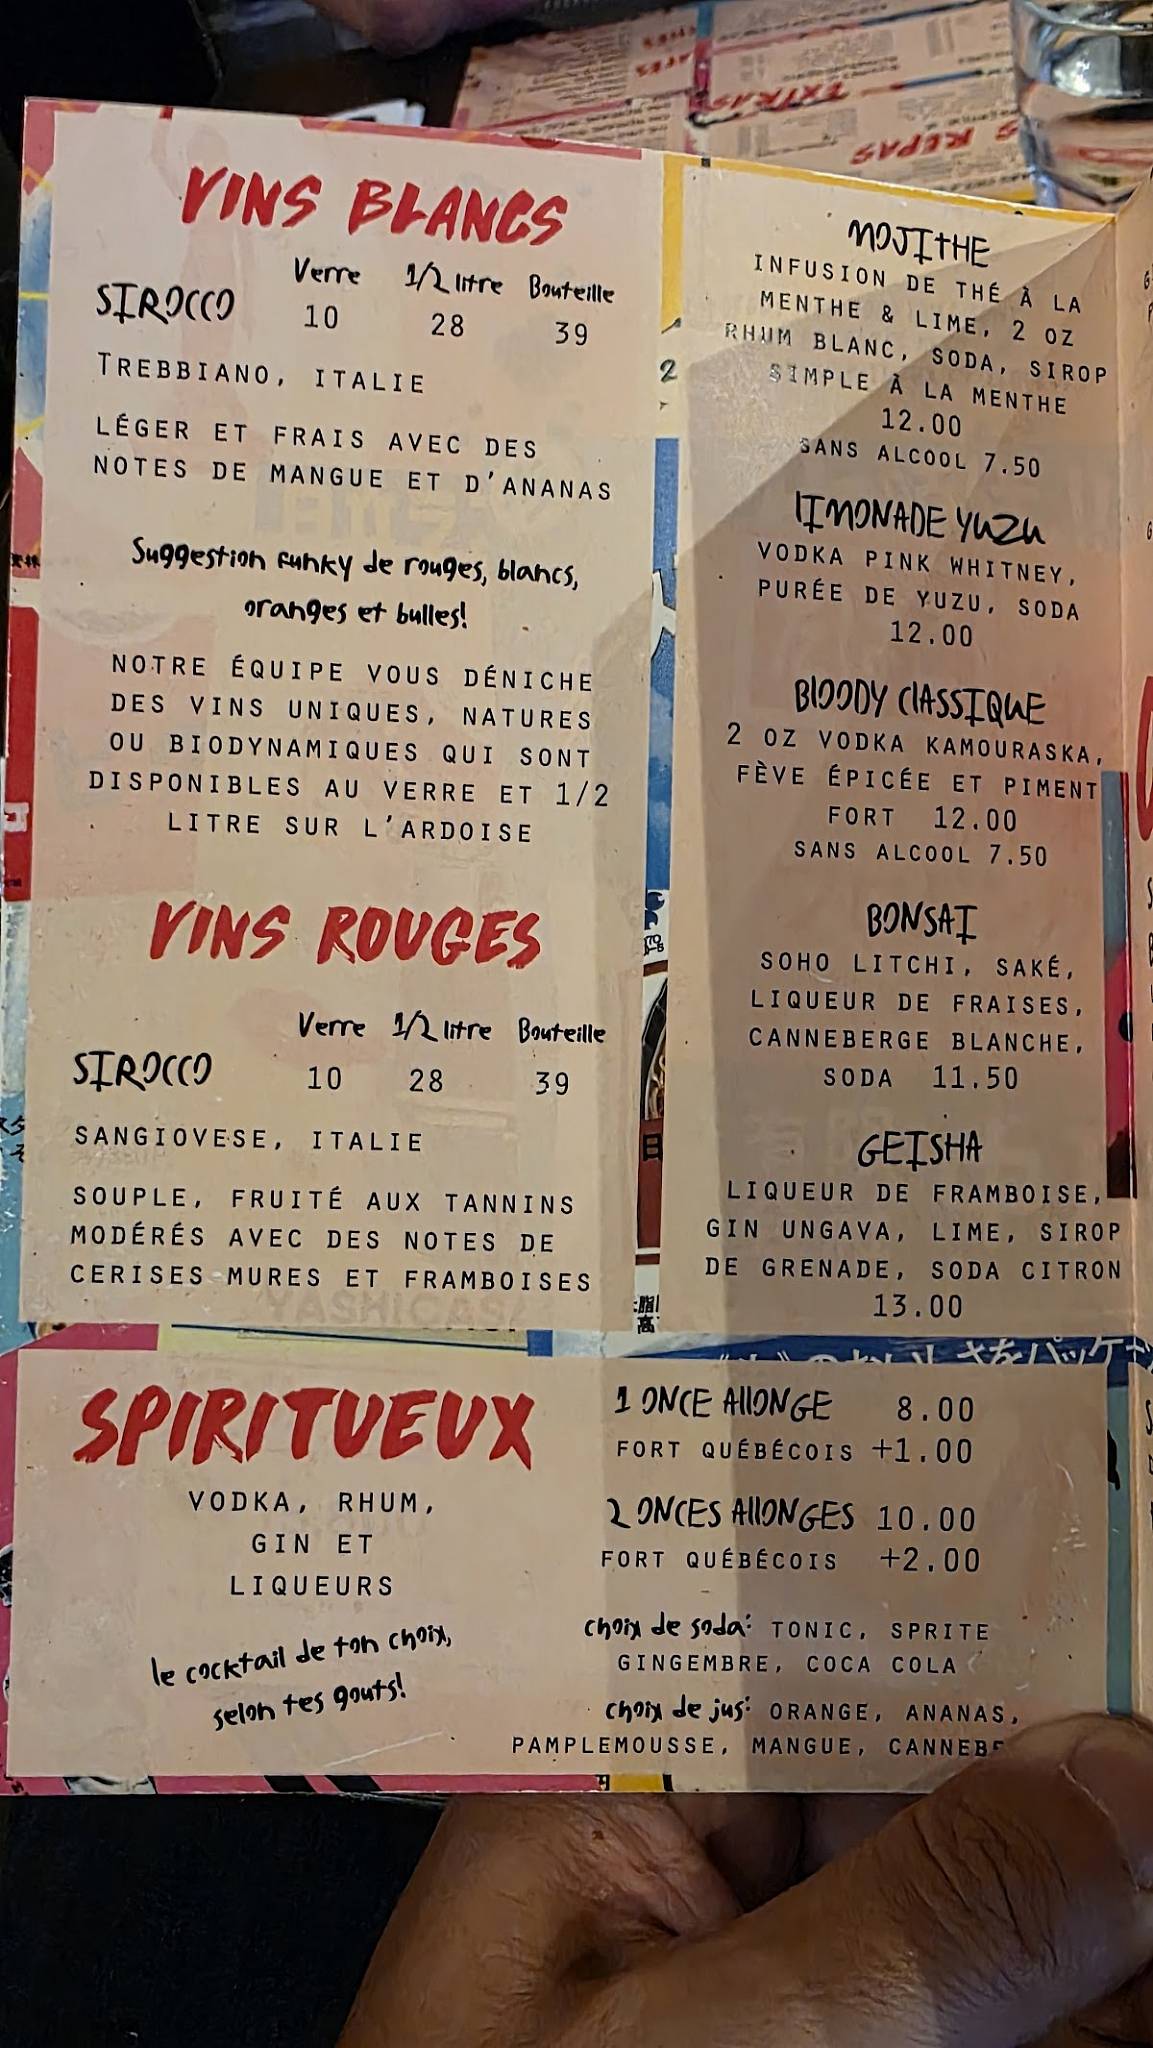 VINS BLANCS
Verre 1/2 litre Bouteille
SIROCCO 10 28 39
TREBBIANO, ITALIE
LÉGER ET FRAIS AVEC DES
NOTES DE MANGUE ET D'ANANAS
Suggestion funky de rouges, blancs,
oranges et bulles!
NOTRE ÉQUIPE VOUS DÉNICHE
DES VINS UNIQUES, NATURES
OU BIODYNAMIQUES QUI SONT
DISPONIBLES AU VERRE ET 1/2
LITRE SUR L'ARDOISE
VINS ROUGES
Verre 1/2 litre Bouteille
SIROCCO 10 28 39
SANGIOVESE, ITALIE
SOUPLE, FRUITÉ AUX TANNINS
MODÉRÉS AVEC DES NOTES DE
CERISES MURES ET FRAMBOISES
MOJITHE
INFUSION DE THÉ À LA
MENTHE & LIME, 2 OZ
RHUM BLANC, SODA, SIROP
SIMPLE À LA MENTHE
12.00
SANS ALCOOL 7.50
LIMONADE YUZU
VODKA PINK WHITNEY,
PURÉE DE YUZU, SODA
12.00
BLOODY ClASSIQUE
2 OZ VODKA KAMOURASKA,
FÈVE ÉPICÉE ET PIMENT
FORT 12.00
SANS ALCOOL 7.50
BONSAI
SOHO LITCHI, SAKÉ,
LIQUEUR DE FRAISES,
CANNEBERGE BLANCHE,
SODA 11.50
GEISHA
LIQUEUR DE FRAMBOISE,
GIN UNGAVA, LIME, SIROP
DE GRENADE, SODA CITRON
13.00
SPIRITUEUX
VODKA, RHUM,
GIN ET
LIQUEURS
le cocktail de ton choix,
selon tes gouts!
1 ONCE AllONGE 8.00
FORT QUÉBÉCOIS +1.00
2 ONCES AllONGES 10.00
FORT QUÉBÉCOIS +2.00
choix de soda: TONIC, SPRITE
GINGEMBRE, COCA COLA
choix de jus: ORANGE, ANANAS,
PAMPLEMOUSSE, MANGUE,
EXTRAS
REPAS